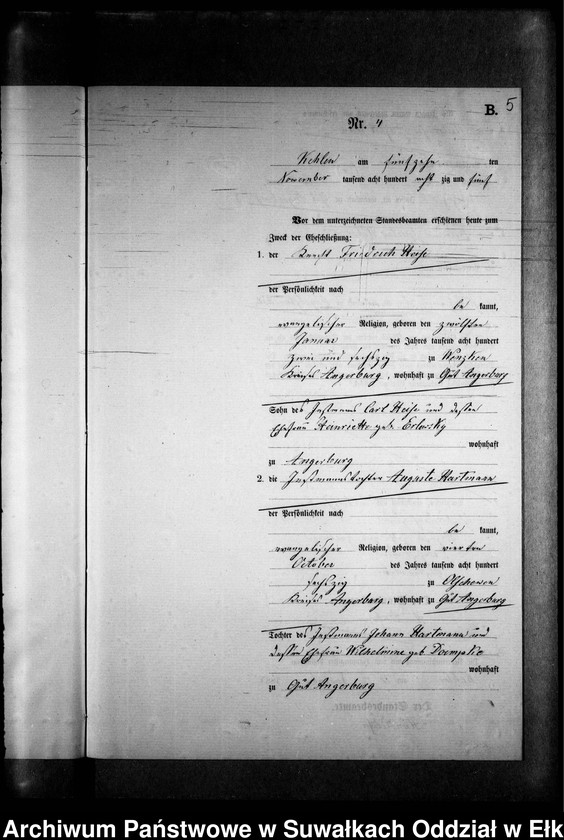 B. 5
Nr. 4
Kehlen am fünfzehn ten
November tausend acht hundert acht zig und fünf
Vor dem unterzeichneten Standesbeamten erschienen heute zum
Zweck der Eheschließung:
1. der Knecht Friedrich Heise
der Persönlichkeit nach
be kannt,
evangelischer Religion, geboren den zwölften
Januar des Jahres tausend acht hundert
zwei und sechszig zu
Kreises Angerburg, wohnhaft zu Gut Angerburg
Sohn des Instmanns Carl Heise und dessen
Ehefrau Henriette geb.
wohnhaft
zu Angerburg
2. die Instmannstochter Auguste Hartmann
der Persönlichkeit nach
be kannt,
evangelischer Religion, geboren den vierten
October des Jahres tausend acht hundert
sechszig zu Olschöwen
Kreises Angerburg, wohnhaft zu Gut Angerburg
Tochter des Instmanns Johann Hartmann und
dessen Ehefrau Wilhelmine geb
wohnhaft
zu Gut Angerburg
Archiwum Państwowe w Suwałkach Oddział w Ełk